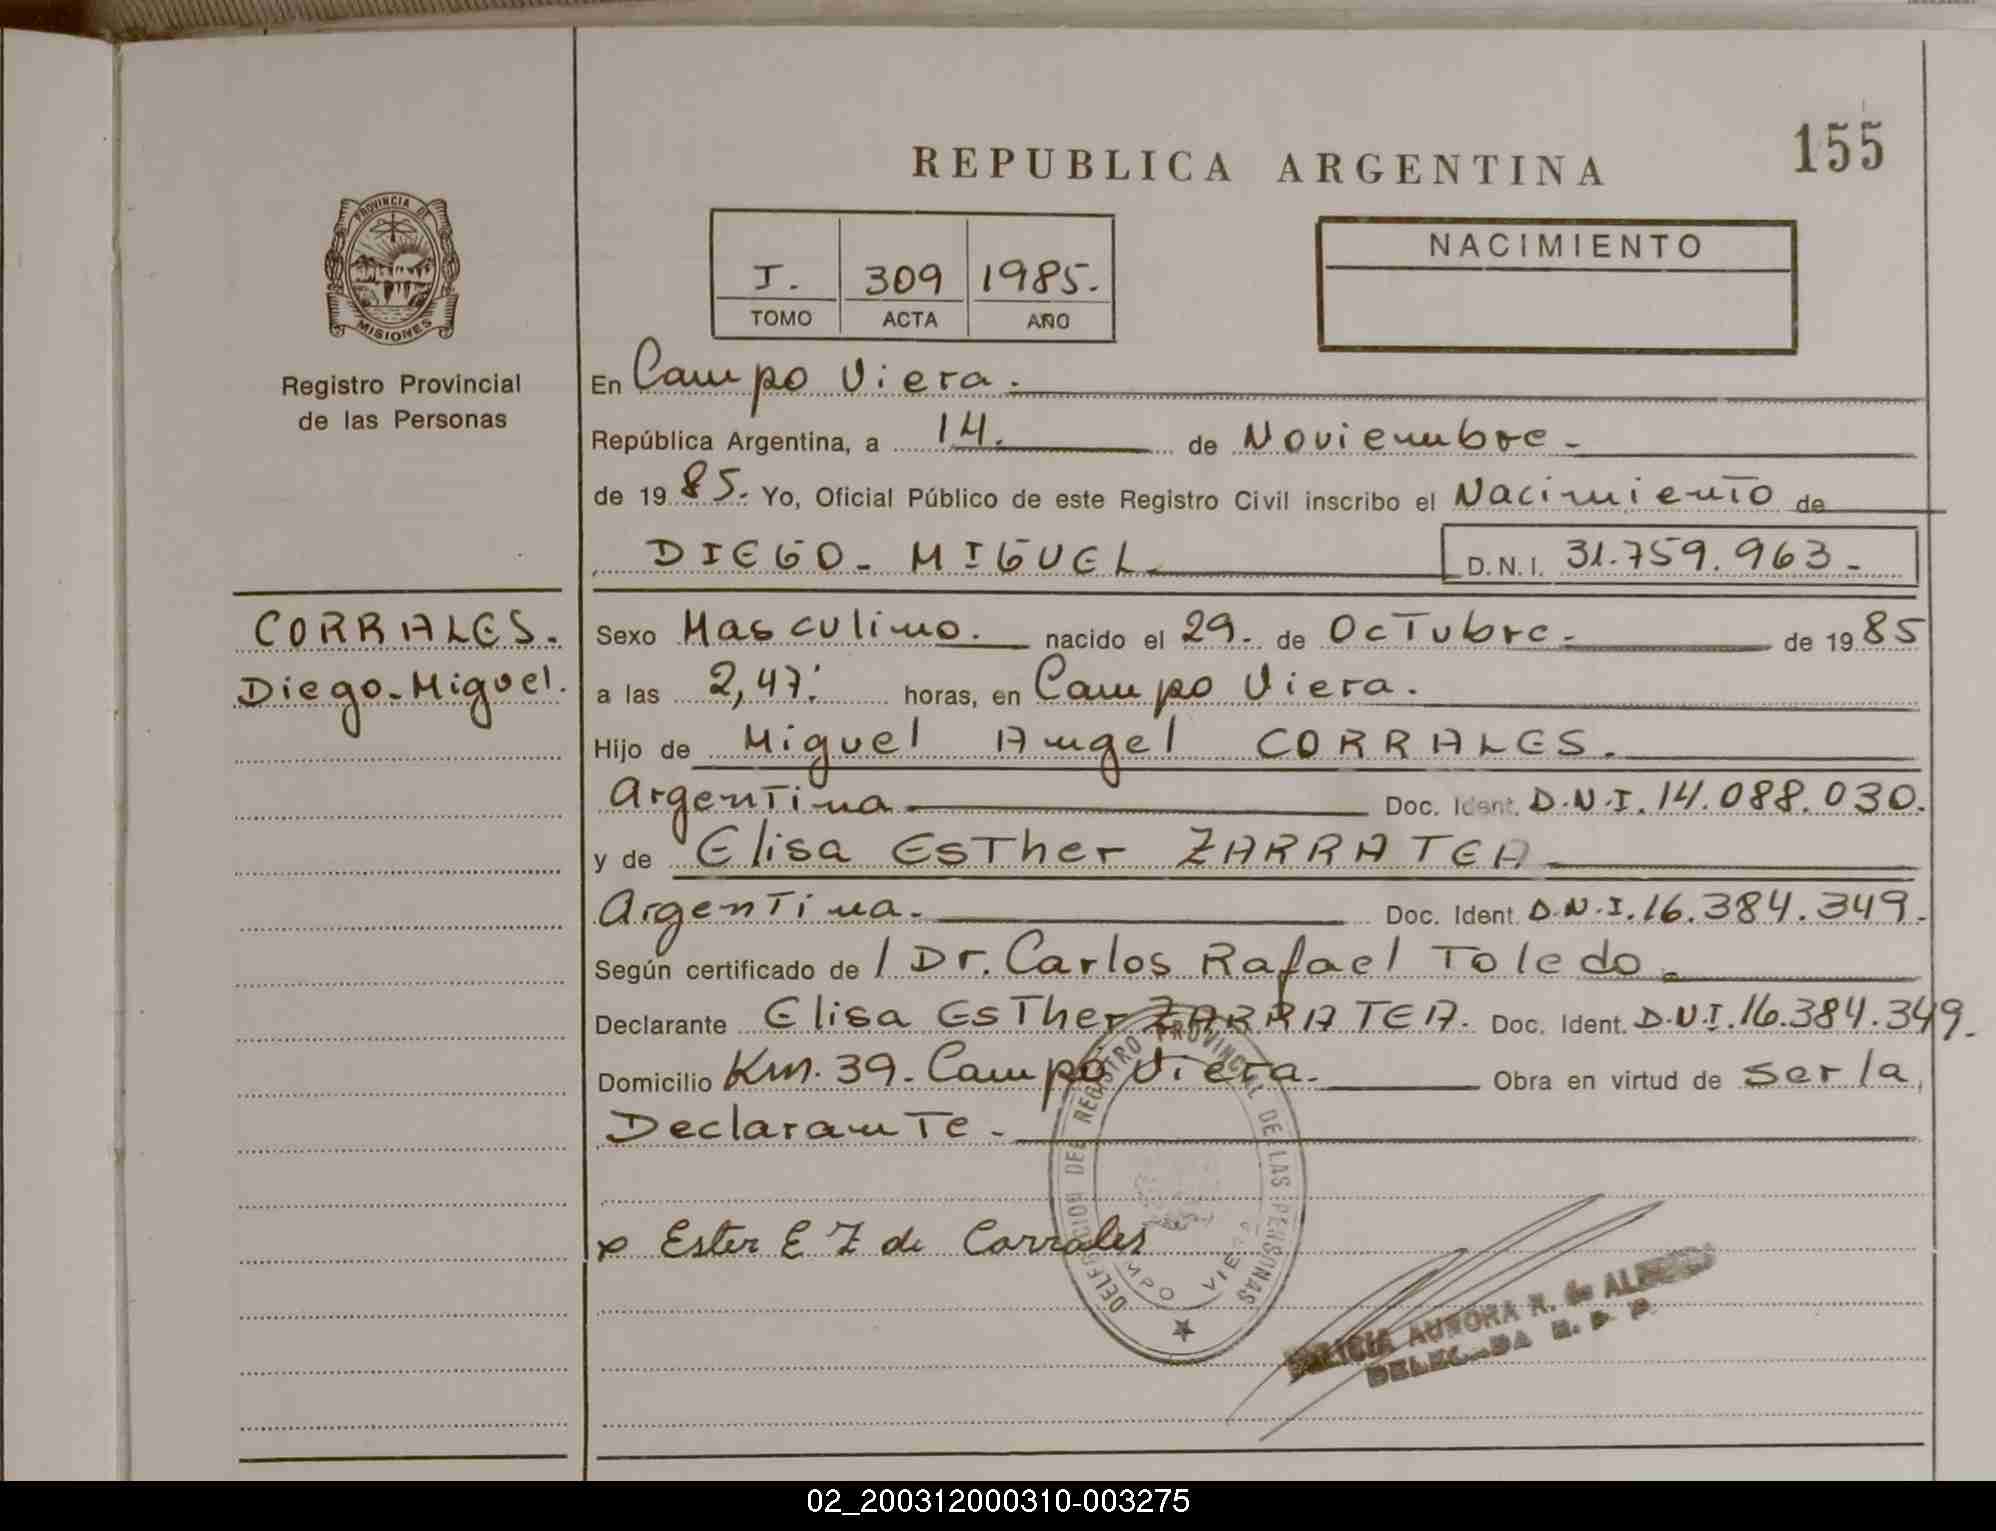 155
REPUBLICA ARGENTINA
PROVINCIA DE
MISIONES
Registro Provincial
de las Personas
I. 309 1985.
TOMO ACTA AÑO
NACIMIENTO
En Campo Viera.
República Argentina, a 14. de Noviembre.
de 1985. Yo, Oficial Público de este Registro Civil inscribo el Nacimiento de
DIEGO - MIGUEL D.N.I. 31.759.963.-
CORRALES.
Diego-Miguel.
Sexo Masculino. nacido el 29. de Octubre. de 1985
a las 2,47. horas, en Campo Viera.
Hijo de Miguel Angel CORRALES.
Argentina Doc. Ident. D.N.I. 14.088.030.
y de Elisa Esther ZARRATEA
Argentina. Doc. Ident. D.N.I. 16.384.349.
Según certificado de / Dr. Carlos Rafael Toledo.
Declarante Elisa Esther ZARRATEA. Doc. Ident. D.N.I. 16.384.349.
Domicilio Km. 39. Campo Viera. Obra en virtud de ser la
Declarante.
REGISTRO PROVINCIAL DE LAS PERSONAS
x Ester E Z de Corrales
AURORA R. de
R. P. P.
02_200312000310-003275